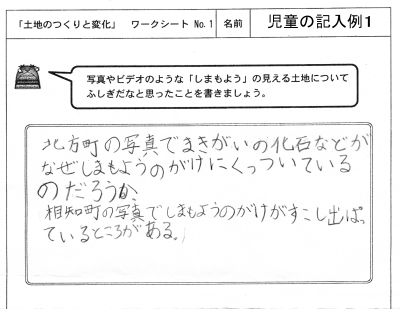 「土地のつくりと変化」 ワークシート No.1 名前 児童の記入例1
写真やビデオのような「しまもよう」の見える土地について
ふしぎだなと思ったことを書きましょう。
北方町の写真でまきがいの化石などが
なぜしまもようのがけにくっついている
のだろうか、
相知町の写真でしまもようのがけがすこし出ぱっ
ているところがある。